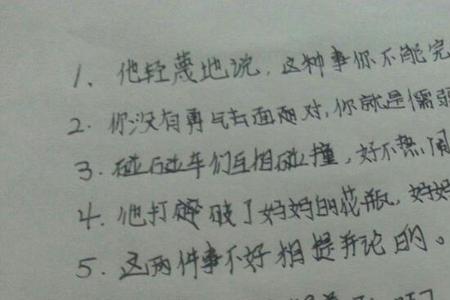 1、他轻蔑地说，这种事你不能完
2.你没有勇气去面对,你就是懦弱
3.碰碰车们互相碰撞，好不热闹
4.他打破了妈妈的花瓶,妈妈
5.这两件事不好相提并论的。